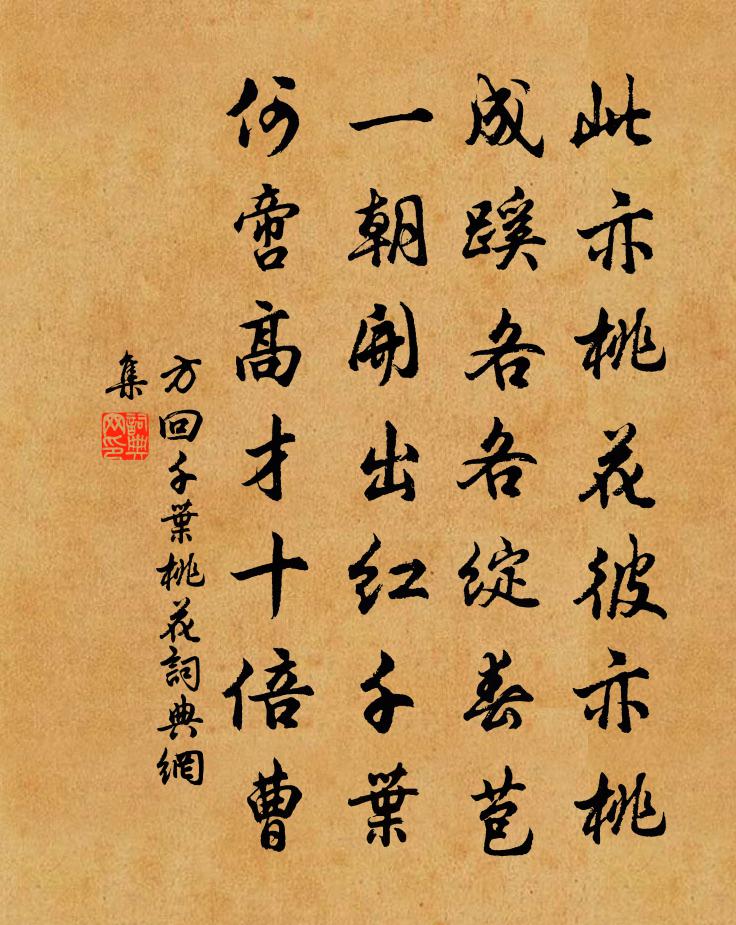 此亦桃花彼亦桃
成蹊各各綻春苞
一朝開出紅千葉
何啻高才十倍曹
方回千葉桃花詞典網
集
詞典
网印